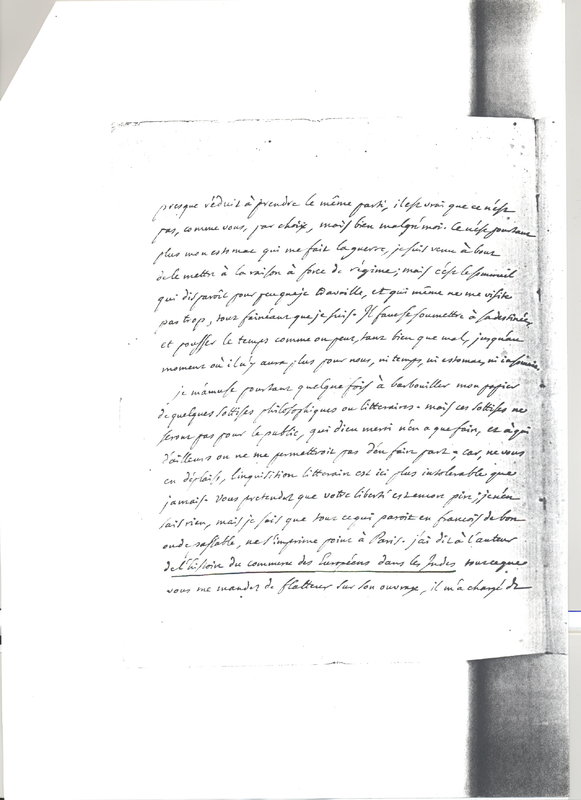 presque réduit à prendre le même parti, il est vrai que ce n'est
pas, comme vous, par choix, mais bien malgré moi. Ce n'est pourtant
plus mon estomac qui me fait la guerre, je suis venu à bout
de le mettre à la raison à force de régime; mais c'est le sommeil
qui disparoît pour peu que je travaille, et qui même ne me visite
pas trop, tout fainéant que je suis. Il faut se soumettre à sa destinée,
et pousser le temps comme on peut, tant bien que mal, jusqu'au
moment où il n'y aura plus pour nous, ni temps, ni estomac, ni insomnie.
je m'amuse pourtant quelque fois à barbouiller mon papier
de quelques sottises philosophiques ou litteraires. mais ces sottises ne
seront pas pour le public, qui dieu merci n'en a que faire, et à qui
d'ailleurs on ne me permettroit pas d'en faire part; car, ne vous
en déplaise, l'inquisition litteraire est ici plus intolerable que
jamais. Vous pretendez que votre liberté est encore pire; je n'en
sais rien, mais je sais que tout ce qui paroit en francois de bon
ou de passable, ne s'imprime point à Paris. j'ai dit à l'auteur
de l'histoire du commerce des Européens dans les Indes tout ce que
vous me mandez de flatteur sur son ouvrage, il m'a chargé de